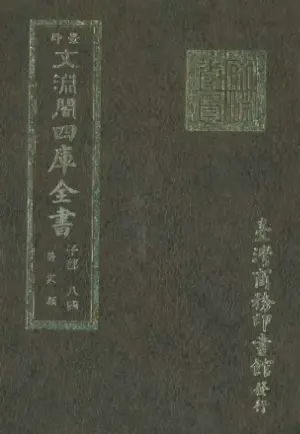 景印
文淵閣四庫全書
子部 八四
臺灣商務印書館發行